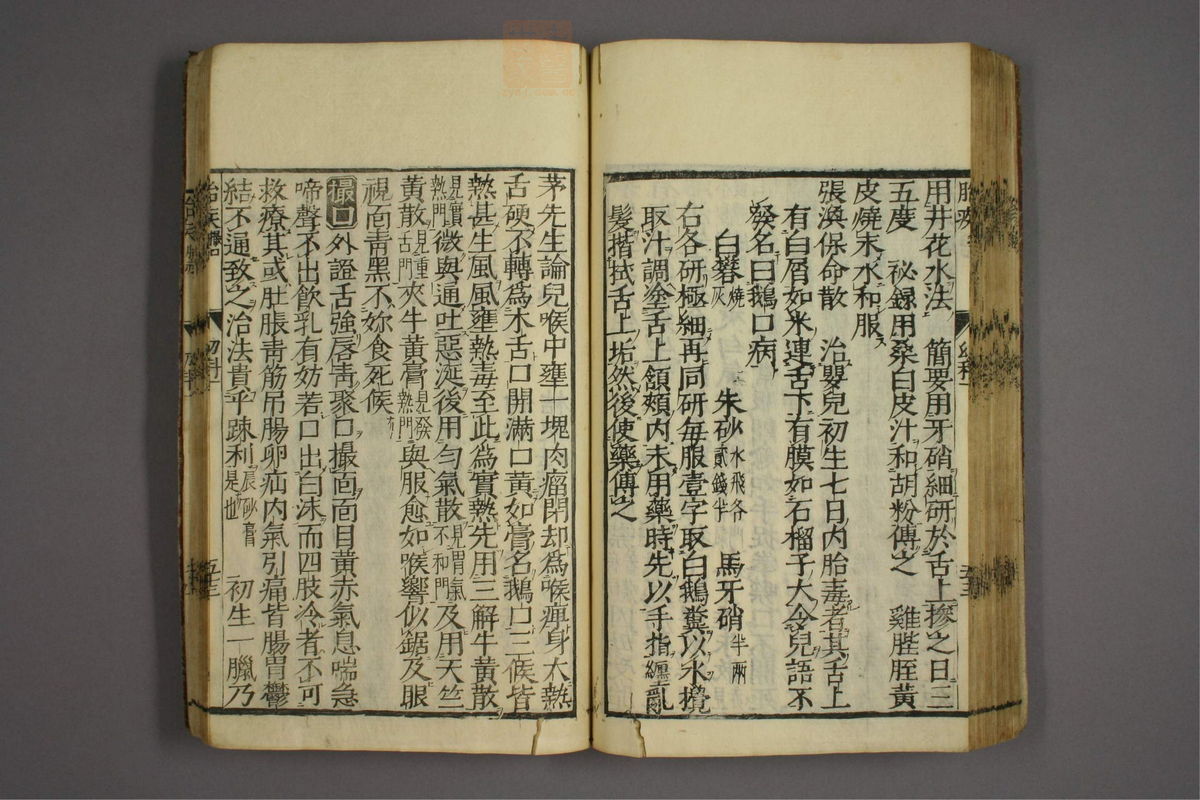 用井花水法　簡要用牙硝細研於舌上摻之日三
五度　祕錄用桑白皮汁和胡粉傅之　雞䏶胵黃
皮燒末水和服
張渙保命散　治嬰兒初生七日內胎毒者其舌上
有白屑如米連舌下有膜如石榴子大令兒語不
發名曰鵝口病
白礬燒灰　朱砂水飛各貳錢半　馬牙硝半兩
右各研極細再同研每服壹字取白鵝糞以水攪
取汁調塗舌上頷頰內未用藥時先以手指纏亂
髮揩拭舌上垢然後使藥傅之
茅先生論兒喉中壅一塊肉瘤閉却為喉痹身大熱
舌硬不轉為木舌口開滿口黃如膏名鵝口三候皆
熱甚生風風壅熱毒至此為實熱先用三解牛黃散
見實熱門微與通吐惡涎後用勻氣散見胃氣不和門及用天竺
黃散見重舌門夾牛黃膏見發熱門與服愈如喉響似鋸及眼
視面靑黑不妳食死候
撮口　外證舌強唇靑聚口撮面面目黃赤氣息喘急
啼聲不出飲乳有妨若口出白沫而四肢冷者不可
救療其或肚脹靑筋吊腸卵疝內氣引痛皆腸胃鬱
結不通致之治法貴乎踈利辰砂膏是也　初生一臘乃